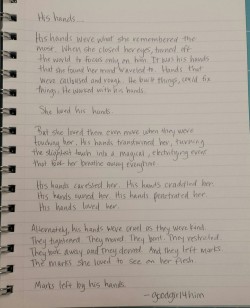 His hands...
His hands were what she remembered the
most. When she closed her eyes, tuned off
the world to focus only on him. It was his hands
that she found her mind traveled to. Hands that
were calloused and rough. He built things, could fix
things. He worked with his hands.
She loved his hands.
But she loved them even more when they were
touching her. His hands transformed her, turning
the slightest touch into a magical, electrifying event
that took her breathe away everytime.
His hands caressed her. His hands cradled her
His hands teased her. His hands penetrated her.
His hands loved her.
Alternately, his hands were cruel as they were kind.
They tightened. They marred. They beat. They restricted.
They took away and they denied. And they left marks.
The marks she loved to see on her flesh.
Marks left by his hands.
-goodgirl4him